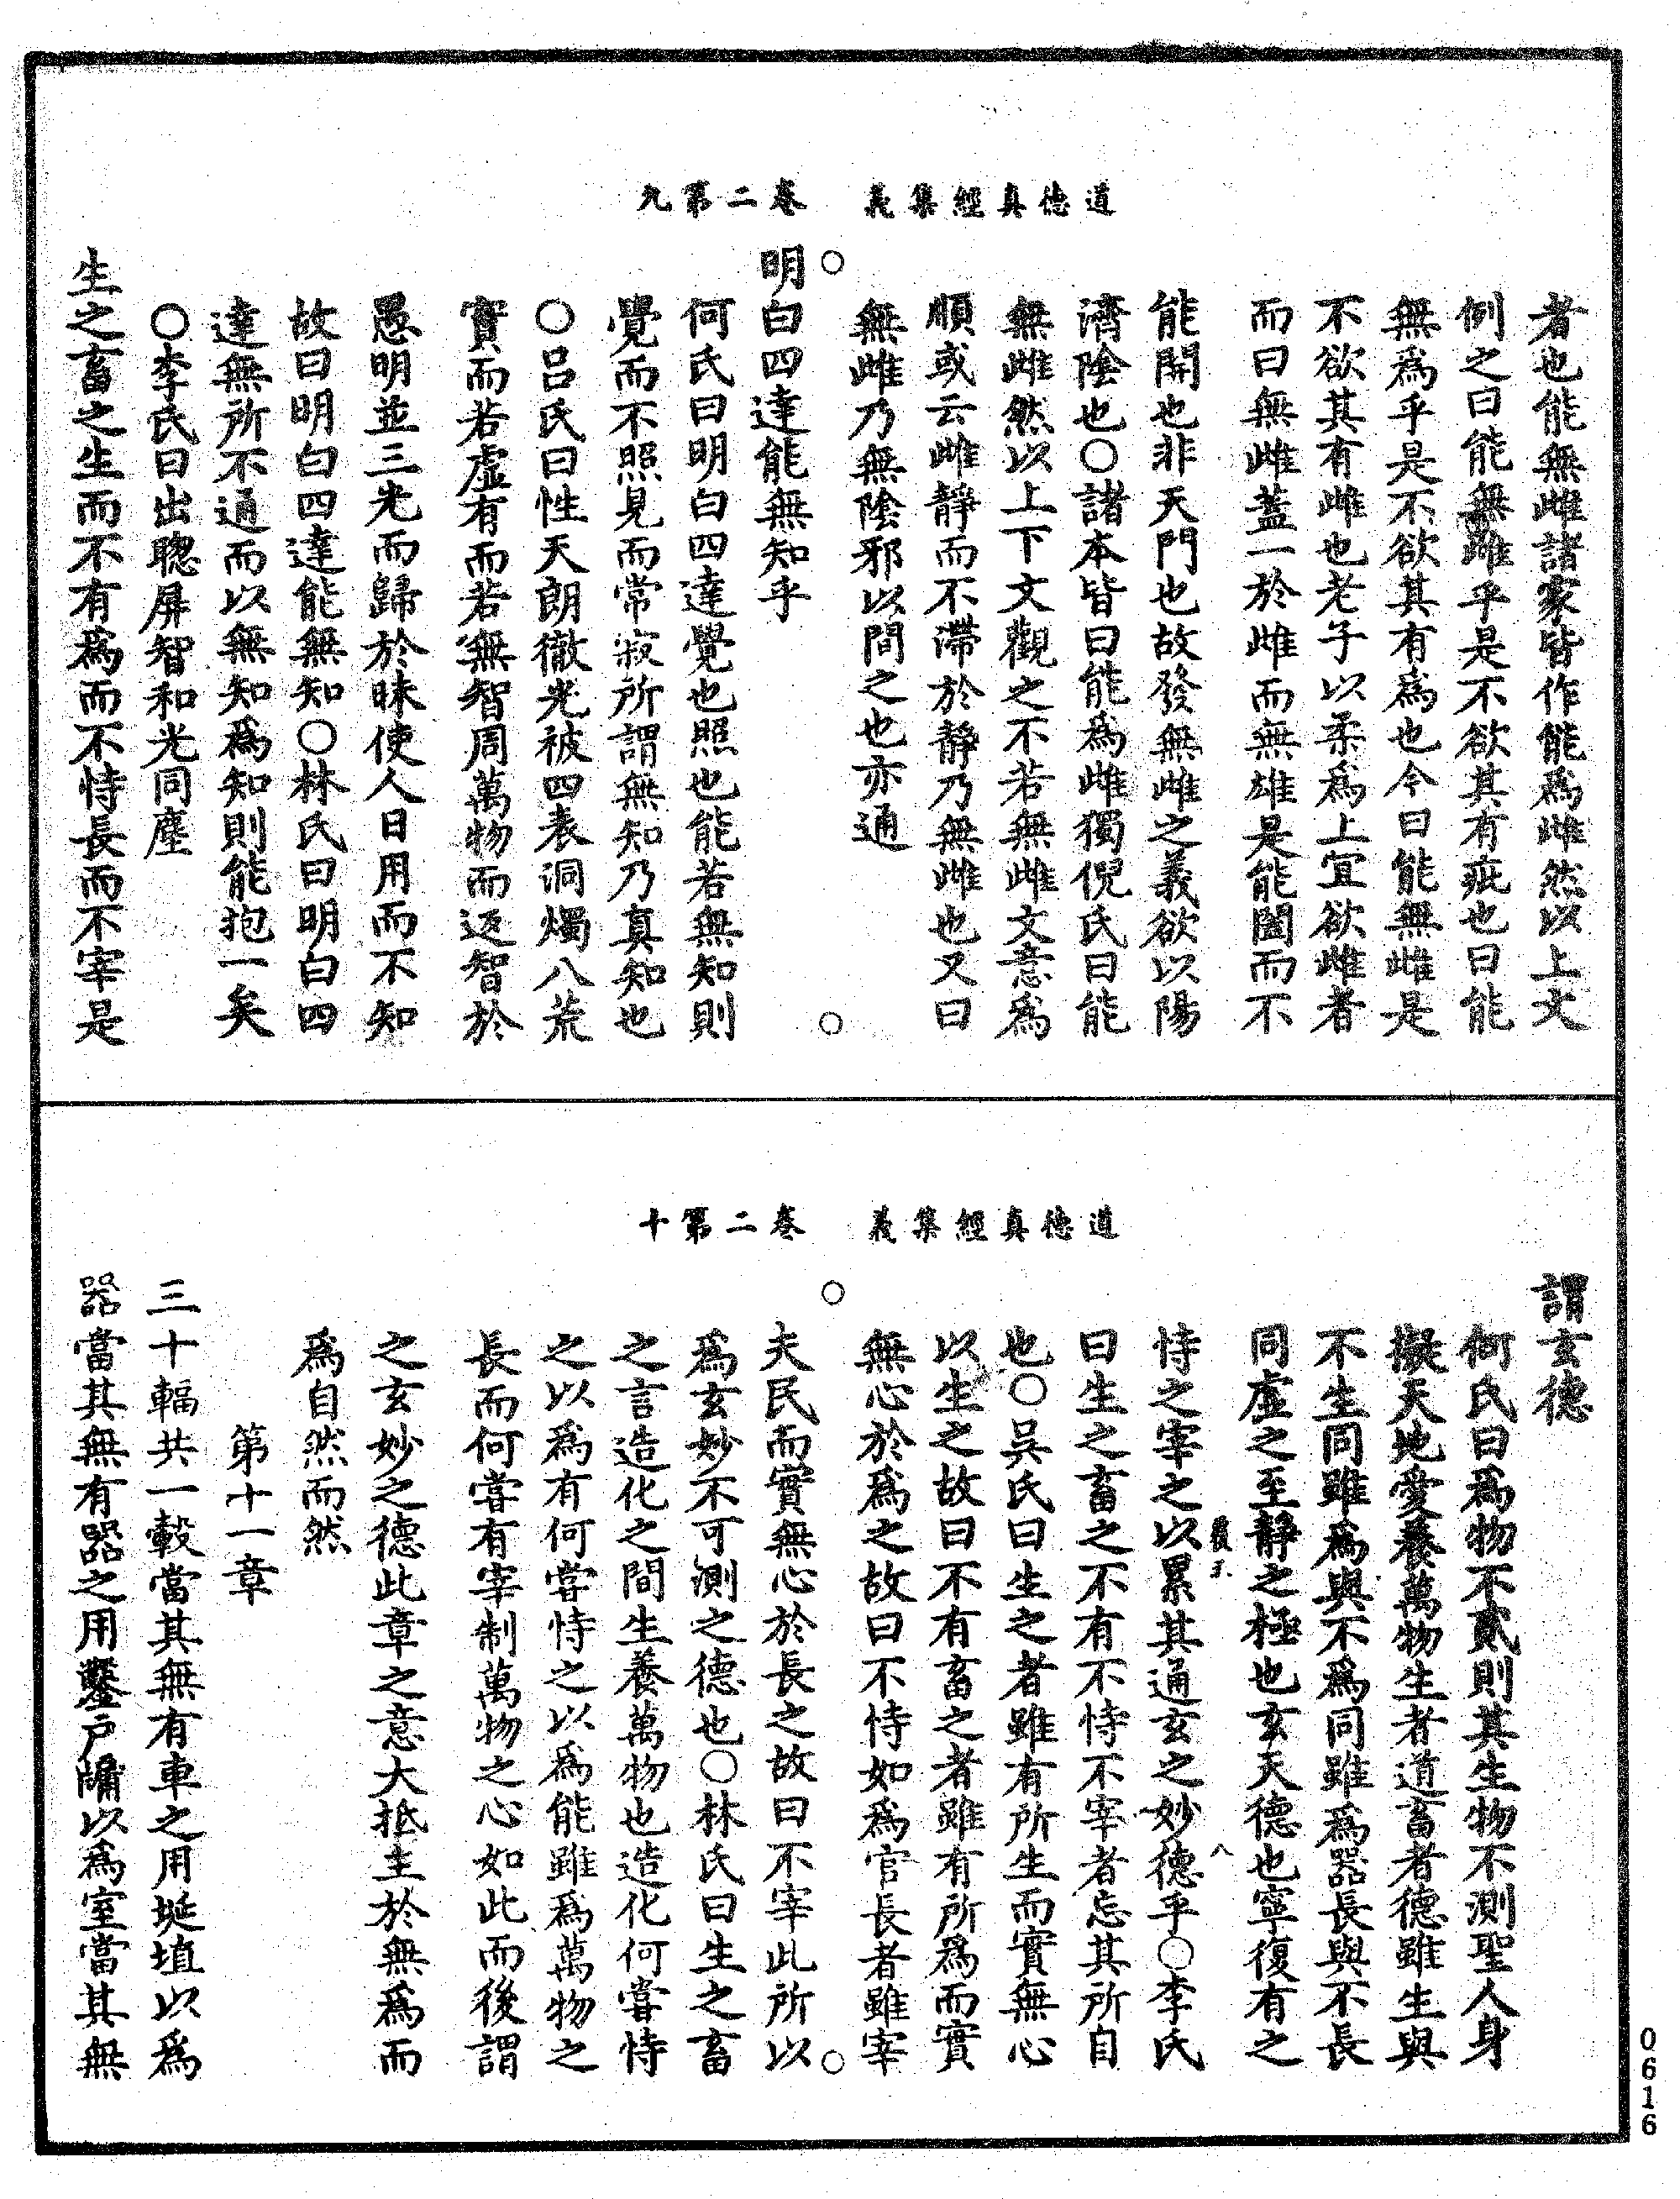 道德真經集義　卷二第九
者也能無雌諸家皆作能爲雌然以上文
例之曰能無雌乎是不欲其有疵也曰能
無爲乎是不欲其有爲也今曰能無雌是
不欲其有雌也老子以柔爲上宜欲雌者
而曰無雌蓋一於雌而無雄是能闔而不
能開也非天門也故發無雌之義欲以陽
濟陰也○諸本皆曰能爲雌獨倪氏曰能
無雌然以上下文觀之不若無雌文意爲
順或云雌靜而不滯於靜乃無雌也又曰
無雌乃無陰邪以間之也亦通
明白四達能無知乎
何氏曰明白四達覺也照也能若無知則
覺而不照見而常寂所謂無知乃真知也
○呂氏曰性天朗徹光被四表洞燭八荒
實而若虛有而若無智周萬物而返智於
愚明並三光而歸於昧使人日用而不知
故曰明白四達能無知○林氏曰明白四
達無所不通而以無知爲知則能抱一矣
○李氏曰出聰屏智和光同塵
生之畜之生而不有爲而不恃長而不宰是
道德真經集義　卷二第十
謂玄德
何氏曰爲物不貳則其生物不測聖人身
擬天地愛養萬物生者道畜者德雖生與
不生同雖爲與不爲同雖爲器長與不長
同虛之至靜之極也玄天德也寧復有之
恃之宰之以累其通玄之妙德乎○李氏
曰生之畜之不有不恃不宰者忘其所自
也○吳氏曰生之者雖有所生而實無心
以生之故曰不有畜之者雖有所爲而實
無心於爲之故曰不恃如爲官長者雖宰
夫民而實無心於長之故曰不宰此所以
爲玄妙不可測之德也○林氏曰生之畜
之言造化之間生養萬物也造化何嘗恃
之以爲有何嘗恃之以爲能雖爲萬物之
長而何嘗有宰制萬物之心如此而後謂
之玄妙之德此章之意大抵主於無爲而
爲自然而然
第十一章
三十輻共一轂當其無有車之用埏埴以爲
器當其無有器之用鑿戶牖以爲室當其無
0616